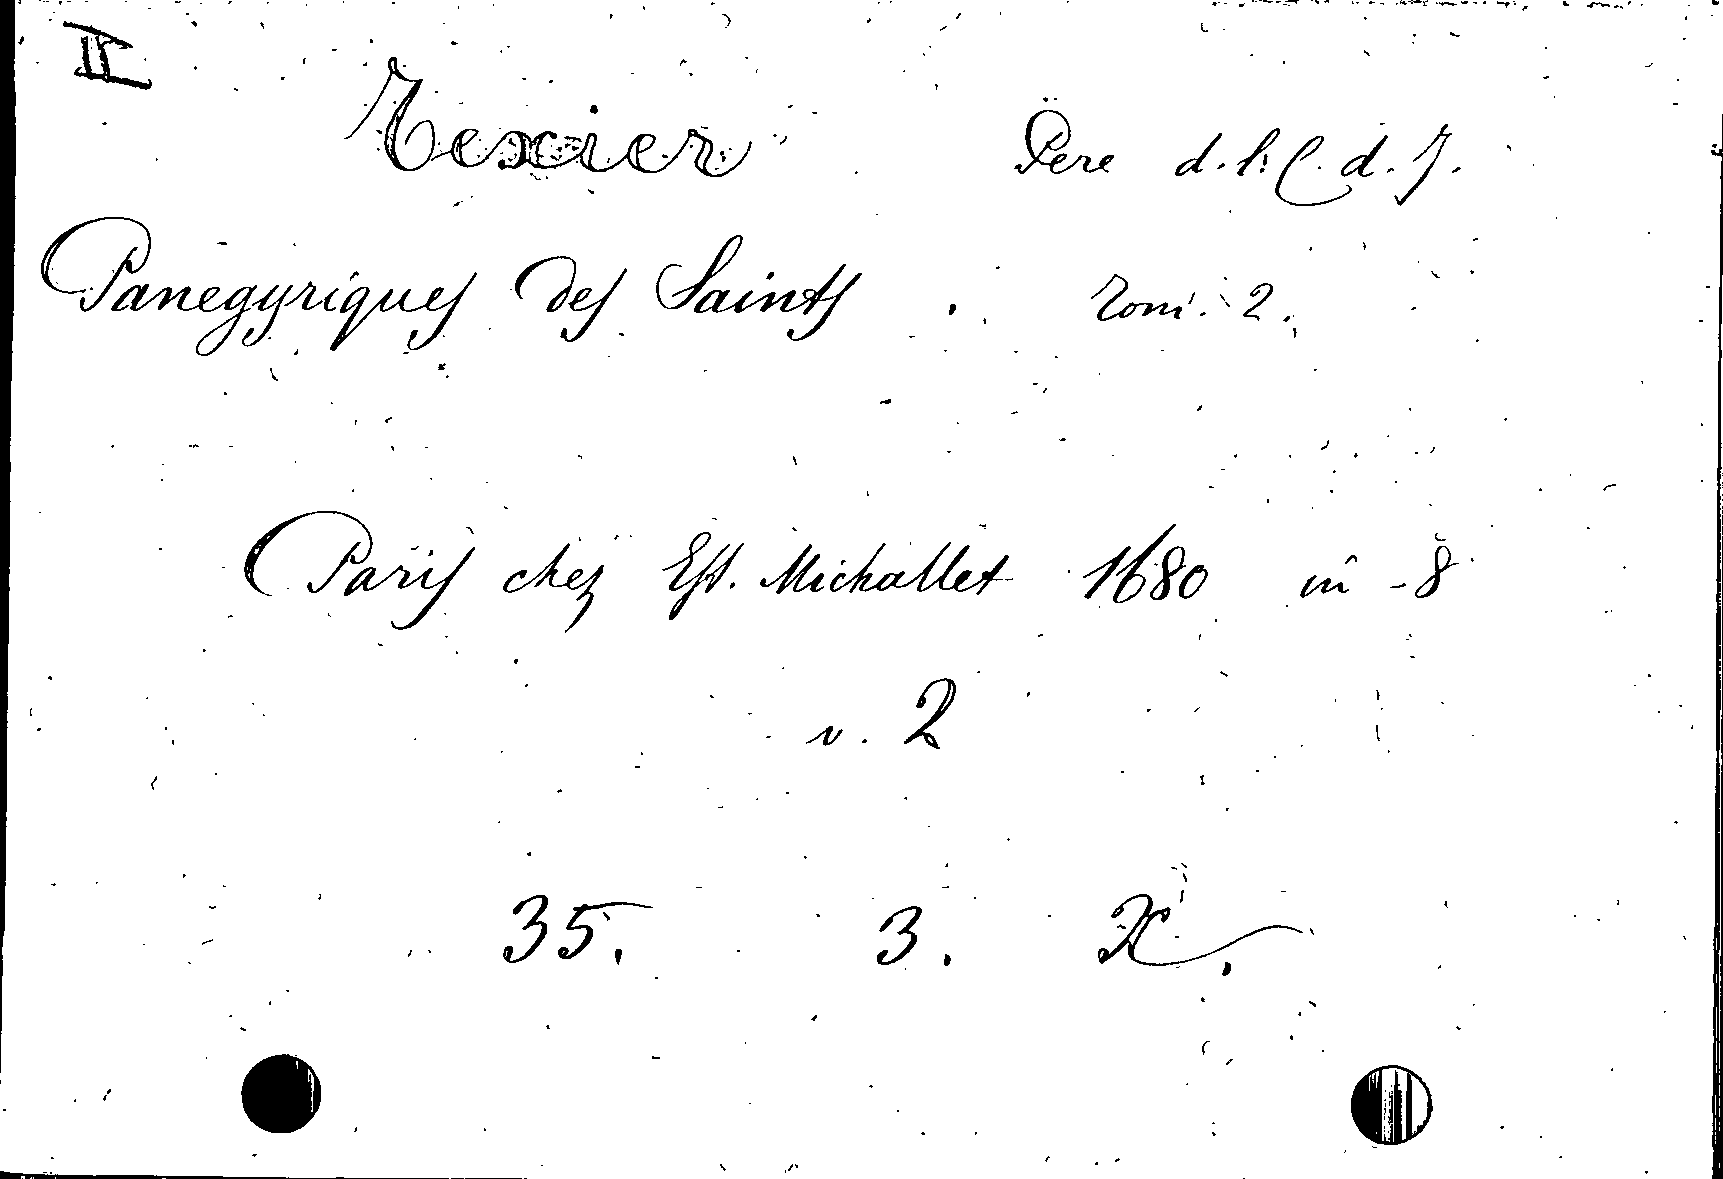 II
Texier Pere d. l. C. d. J.
Panegyriques des Saints . Tom. 2.
Paris chez Est. Michallet 1680 in - 8
v. 2
35. 3.